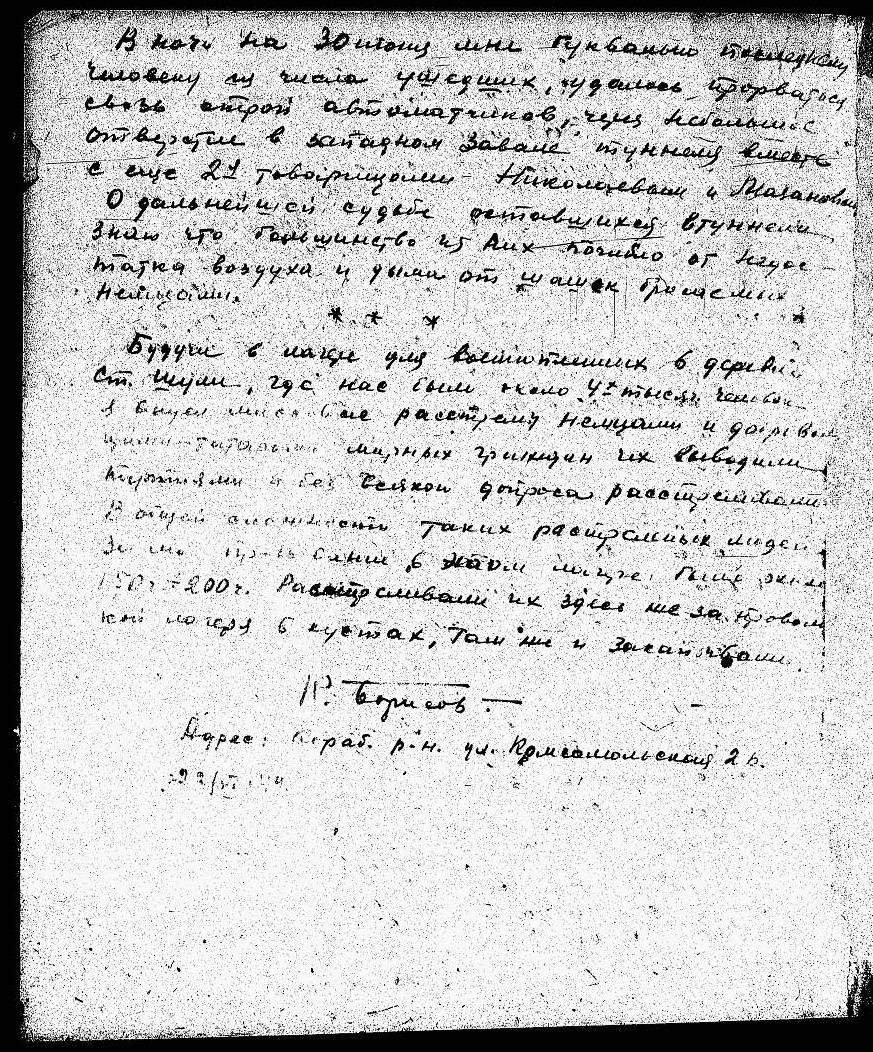 В ночь на 30 июня мне буквально последнему
человеку из числа ушедших, удалось прорваться
сквозь строй автоматчиков, через небольшое
отверстие в западном завале туннеля вместе
с еще 2я товарищами Николаевым и
О дальнейшей судьбе оставшихся в туннели
знаю что большинство из них погибло от недос-
татка воздуха и дыма от шашек бросаемых
немцами.
* * *
Будучи в лагере для военнопленных в деревни
Ст. Шули, где нас было около 4х тысяч человек
я видел массовые расстрелы немцами и
татарами мирных граждан их выводили
партиями и без всякой допроса расстреливали
В общей сложности таких растреляных людей
За мое в этом лагере было около
150 - 200ч. Расстреливали их здесь же за
кой лагеря в кустах, там же и закапывали.
Борисов.
Адрес: Кораб. р-н. ул. Комсомольская 2